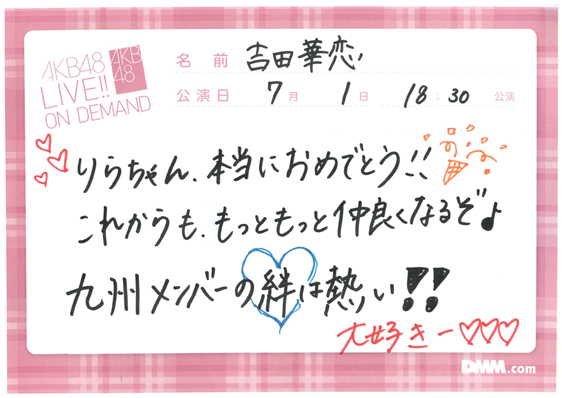 AKB48
LIVE!!
ON DEMAND
AKB
48
名前 吉田華恋
公演日 7月 1日 18:30 公演
りらちゃん、本当におめでとう!!
これからも、もっともっと仲良くなるぞ♪
九州メンバーの絆は熱い!!
大好きー♡♡♡
DMM.com